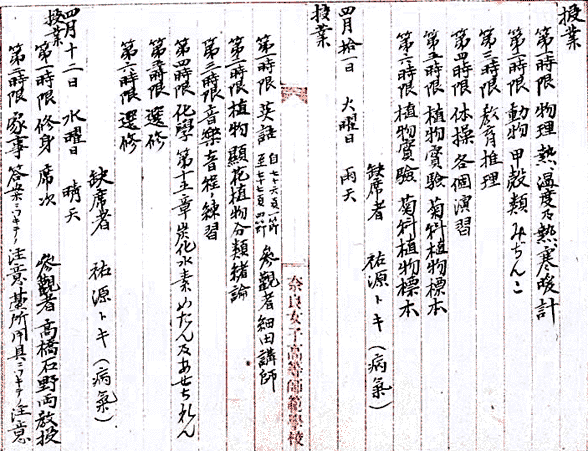 授業
第一時限 物理 熱 温度及熱 寒暖計
第二時限 動物 甲殻類 みぢんこ
第三時限 教育 推理
第四時限 体操 各個演習
第五時限 植物實驗 菊科植物標本
第六時限 植物實驗 菊科植物標本
缺席者 祐源トキ(病氣)
四月拾一日 火曜日 雨天
授業
第一時限 英語 自七十六頁一節 至七十七頁四節 参觀者 細田講師
第二時限 植物 顯花植物分類緒論
第三時限 音樂 音程練習
第四時限 化學 第十五章 炭化水素 めたん及あせちれん
第五時限 選修
第六時限 選修
缺席者 祐源トキ(病氣)
四月十二日 水曜日 晴天
授業
第一時限 修身 席次 参觀者 高橋石野両教授
第二時限 家事 答案ニツキテノ注意 臺所用具ニツキテ注意
奈良女子高等師範學校